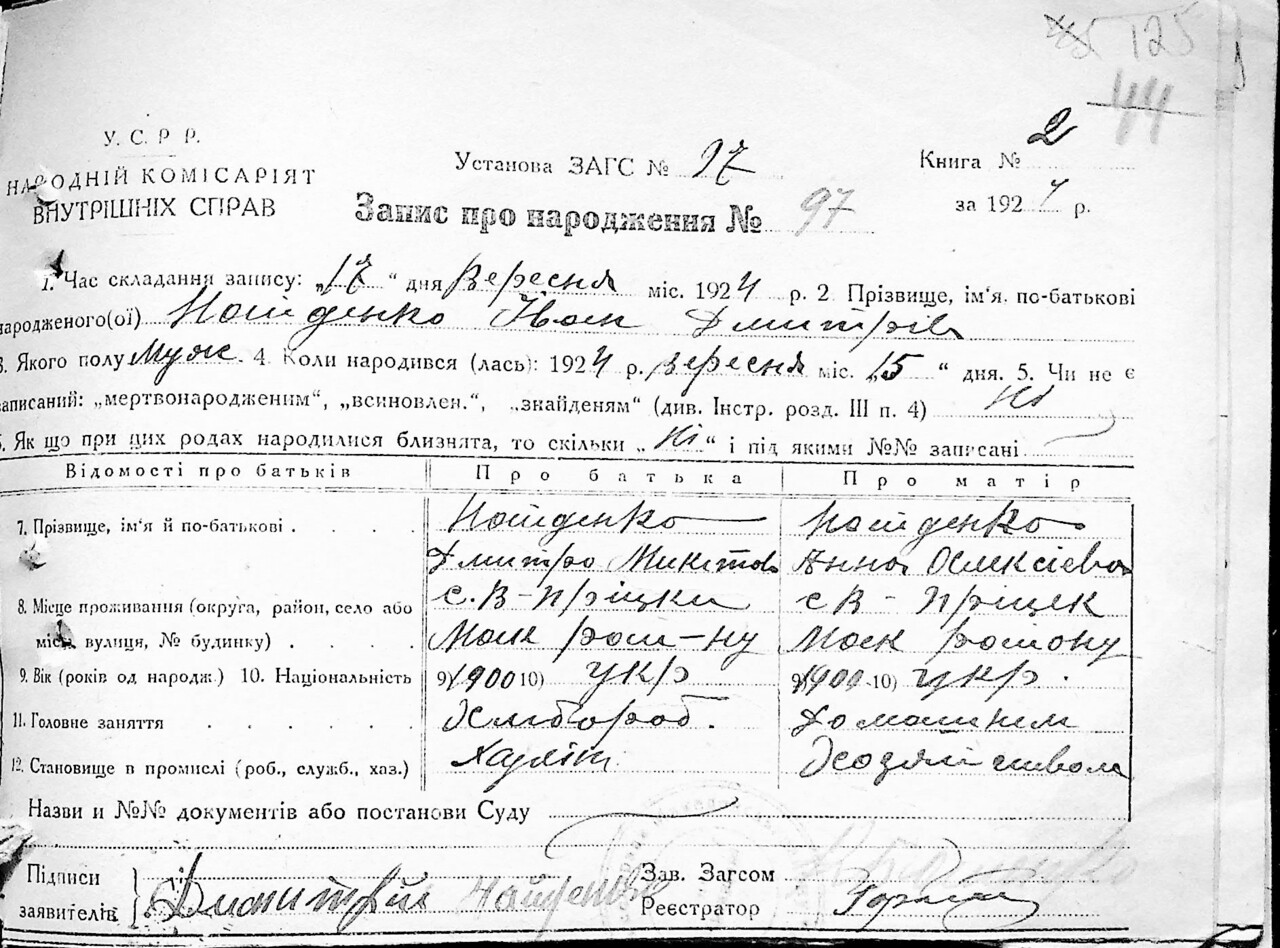 125
44
У. С. Р. Р.
НАРОДНІЙ КОМІСАРІЯТ
ВНУТРІШНІХ СПРАВ
Установа ЗАГС № 17
Книга № 2
за 1924 р.
Запис про народження № 97
1. Час складання запису: „17“ дня Вересня міс. 1924 р. 2 Прізвище, ім'я, по-батькові
народженого(ої) Найденко Іван Дмитрів
3. Якого полу Муж. 4. Коли народився (лась): 1924 р. вересня міс. „15“ дня. 5. Чи не є
записаний: „мертвонародженим“, „всиновлен.“, „знайденям“ (див. Інстр. розд. III п. 4) Ні
6. Як що при цих родах народилися близнята, то скільки „Ні“ і під якими №№ записані
Відомості про батьків Про батька Про матір
7. Прізвище, ім'я й по-батькові . . . . Найденко Найденко
Дмитро Микитов Анна Олексіева
8. Місце проживання (округа, район, село або с. В-Пріцки с В - Пріцек
місто, вулиця, № будинку) . . . . рай-ну району
9. Вік (років од народж.) 10. Національність 9) 1900 10) укр 9) 1900 10) укр.
11. Головне заняття . . . . . Хлібороб. Домашнем
12. Становище в промислі (роб., служб., хаз.) Хазяїн Хозяйством
Назви и №№ документів або постанови Суду
Підписи
заявителів Дмитрий Найденко
Зав. Загсом
Реєстратор